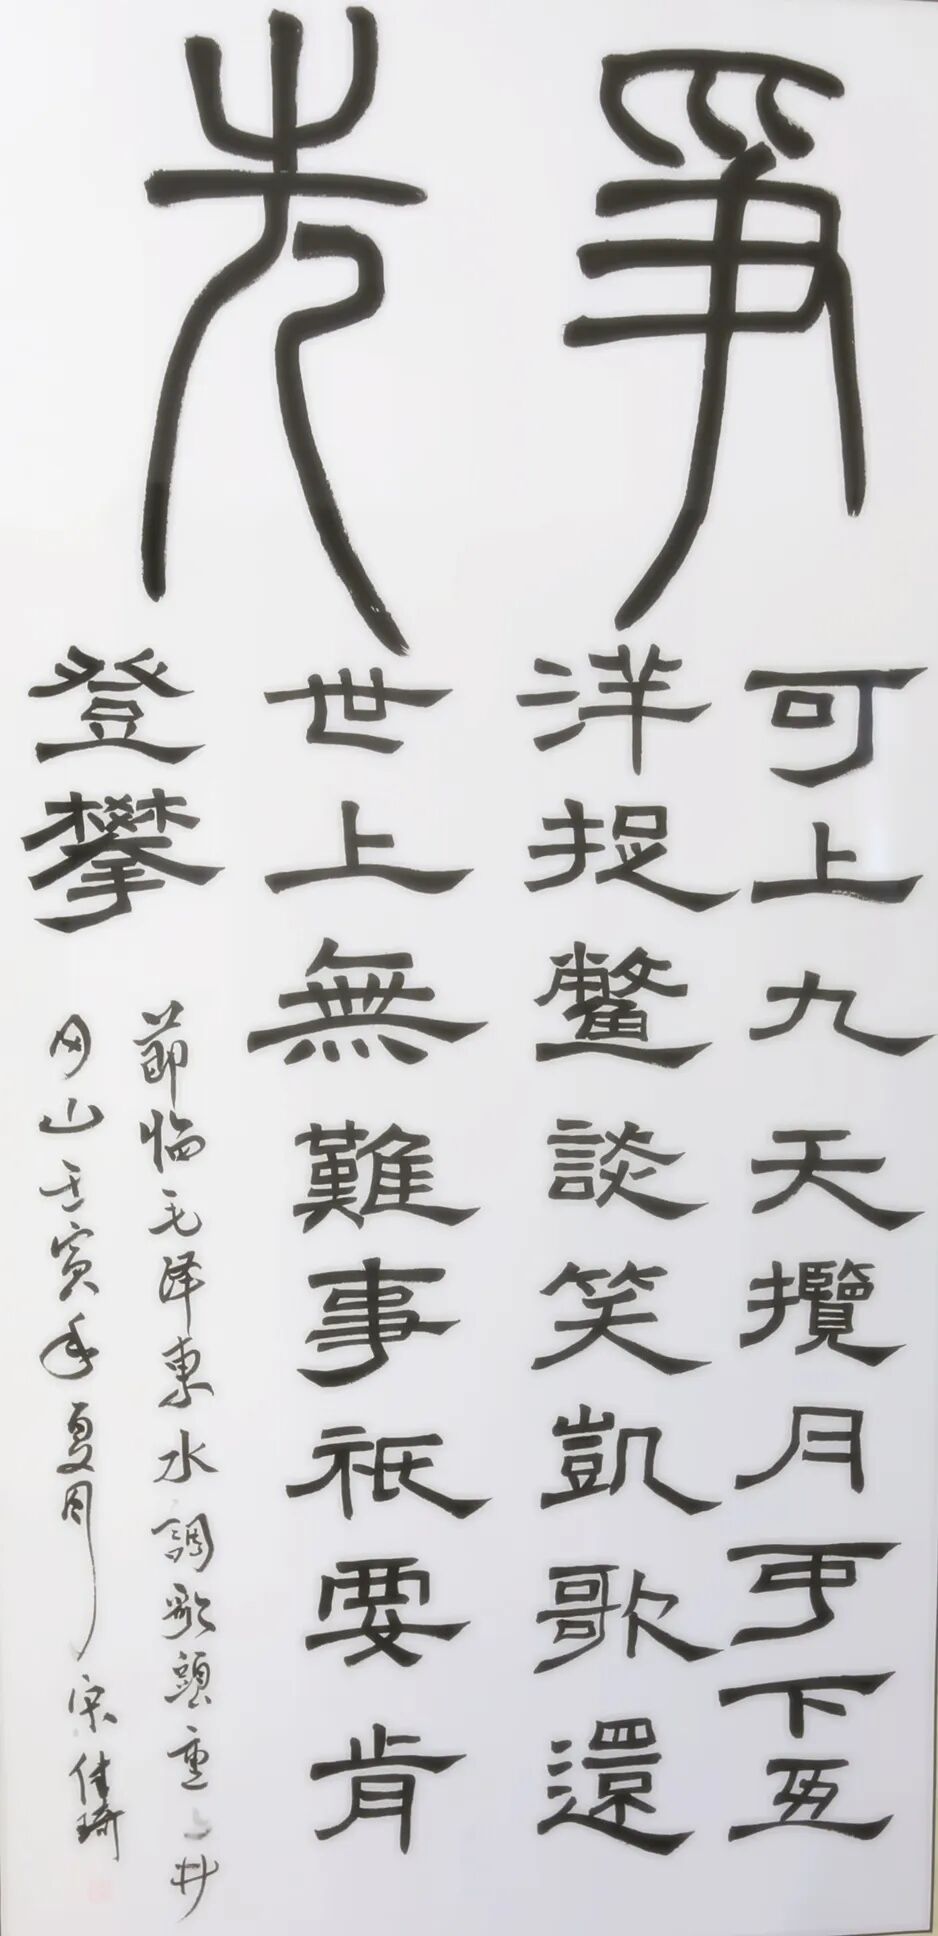 爭先
可上九天攬月可下五
洋捉鱉談笑凱歌還
世上無難事祇要肯
登攀
節臨毛泽東水調歌頭重上井
冈山壬寅年夏月宋佳琦